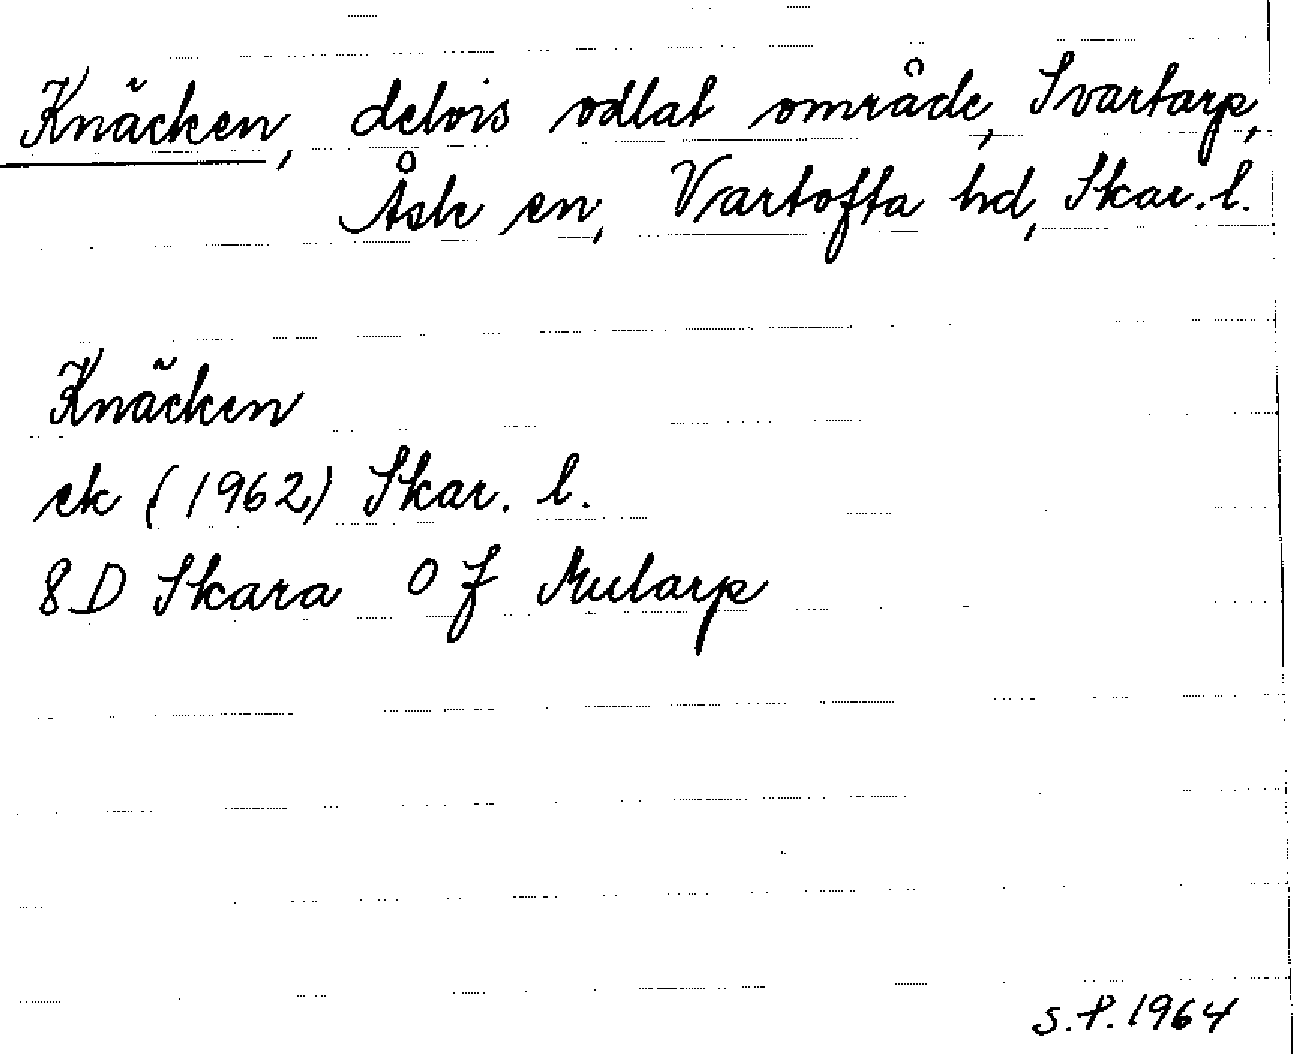 Knäcken, delvis odlat område, Svartarp,
Åsle sn, Vartofta hd, Skar. l.
Knäcken
ek (1962) Skar. l.
8D Skara 0f Mularp
S.P. 1964